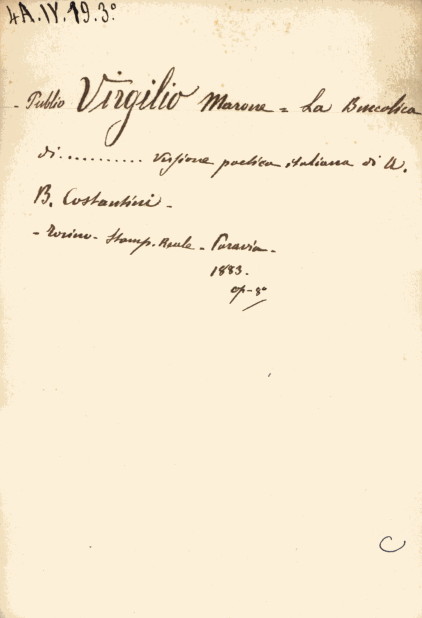 4A.IV.19.3º
- Publio Virgilio Marone = La Buccolica
di .......... Versione poetica italiana di A.
B. Costantini -
- Torino - Stamp. Reale - Paravia -
1883.
op-8º
C